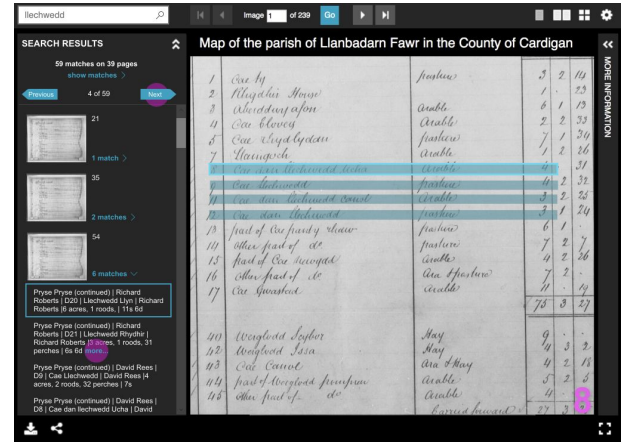 llechwedd
Image 1 of 239 Go
SEARCH RESULTS
59 matches on 39 pages
show matches
Previous 4 of 59 Next
21
1 match
35
2 matches
54
6 matches
Pryse Pryse (continued) | Richard
Roberts | D20 | Llechwedd Llyn | Richard
Roberts |6 acres, 1 roods, | 11s 6d
Pryse Pryse (continued) | Richard
Roberts | D21 | Llechwedd Rhydhir |
Richard Roberts |5 acres, 1 roods, 31
perches | 6s 6d more...
Pryse Pryse (continued) | David Rees |
D9 | Cae Llechwedd | David Rees |4
acres, 2 roods, 32 perches | 7s
Pryse Pryse (continued) | David Rees |
D8 | Cae dan llechwedd Ucha | David
Map of the parish of Llanbadarn Fawr in the County of Cardigan
MORE INFORMATION
1 Cae ty pasture 3 2 14
2 House 1 . 23
3 arable 6 1 13
4 Cae Arable 2 2 33
5 Cae pasture 7 1 34
7 arable 1 2 26
8 Cae dan llechwedd ucha arable 4 31
9 Cae llechwedd pasture 4 2 32
11 Cae dan llechwedd canol Arable 3 2 25
12 Cae dan llechwedd pasture 3 1 24
13 part of Cae pasture 6 1
14 other part of do pasture 7 2 7
15 part of Cae arable 4 2 26
16 other part of do Ara & pasture 7 2 .
17 Cae Gwastad arable 11 . 19
75 3 27
40 Hay 9 . .
42 Hay 4 3 2
43 Cae Canol Ara & Hay 4 2 18
44 part of arable 5 2 5
45 other part of do arable 4 .
Carried forward 27 3